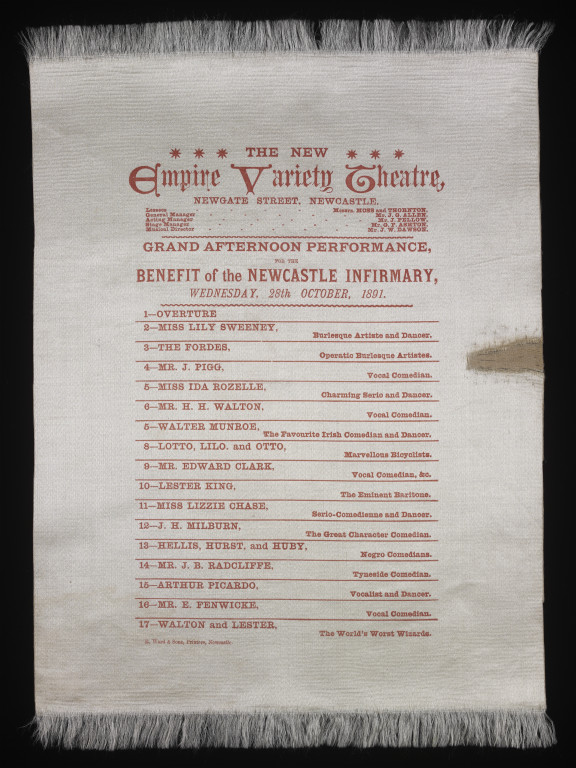 THE NEW
Empire Variety Theatre,
NEWGATE STREET, NEWCASTLE.
Lessees Messrs. MOSS and THORNTON.
General Manager Mr. J. G. ALLEN.
Acting Manager Mr. J. FELLOW.
Stage Manager Mr. G. F. ASHTON.
Musical Director Mr. J. W. DAWSON.
GRAND AFTERNOON PERFORMANCE,
FOR THE
BENEFIT of the NEWCASTLE INFIRMARY,
WEDNESDAY, 28th OCTOBER, 1891.
1—OVERTURE
2—MISS LILY SWEENEY,
Burlesque Artiste and Dancer.
3—THE FORDES,
Operatic Burlesque Artistes.
4—MR. J. PIGG,
Vocal Comedian.
5—MISS IDA ROZELLE,
Charming Serio and Dancer.
6—MR. H. H. WALTON,
Vocal Comedian.
5—WALTER MUNROE,
The Favourite Irish Comedian and Dancer.
8—LOTTO, LILO. and OTTO,
Marvellous Bicyclists.
9—MR. EDWARD CLARK,
Vocal Comedian, &c.
10—LESTER KING,
The Eminent Baritone.
11—MISS LIZZIE CHASE,
Serio-Comedienne and Dancer.
12—J. H. MILBURN,
The Great Character Comedian.
13—HELLIS, HURST, and HUBY,
Negro Comedians.
14—MR. J. B. RADCLIFFE,
Tyneside Comedian.
15—ARTHUR PICARDO,
Vocalist and Dancer.
16—MR. E. FENWICKE,
Vocal Comedian.
17—WALTON and LESTER,
The World's Worst Wizards.
Ward & Sons, Printers, Newcastle.